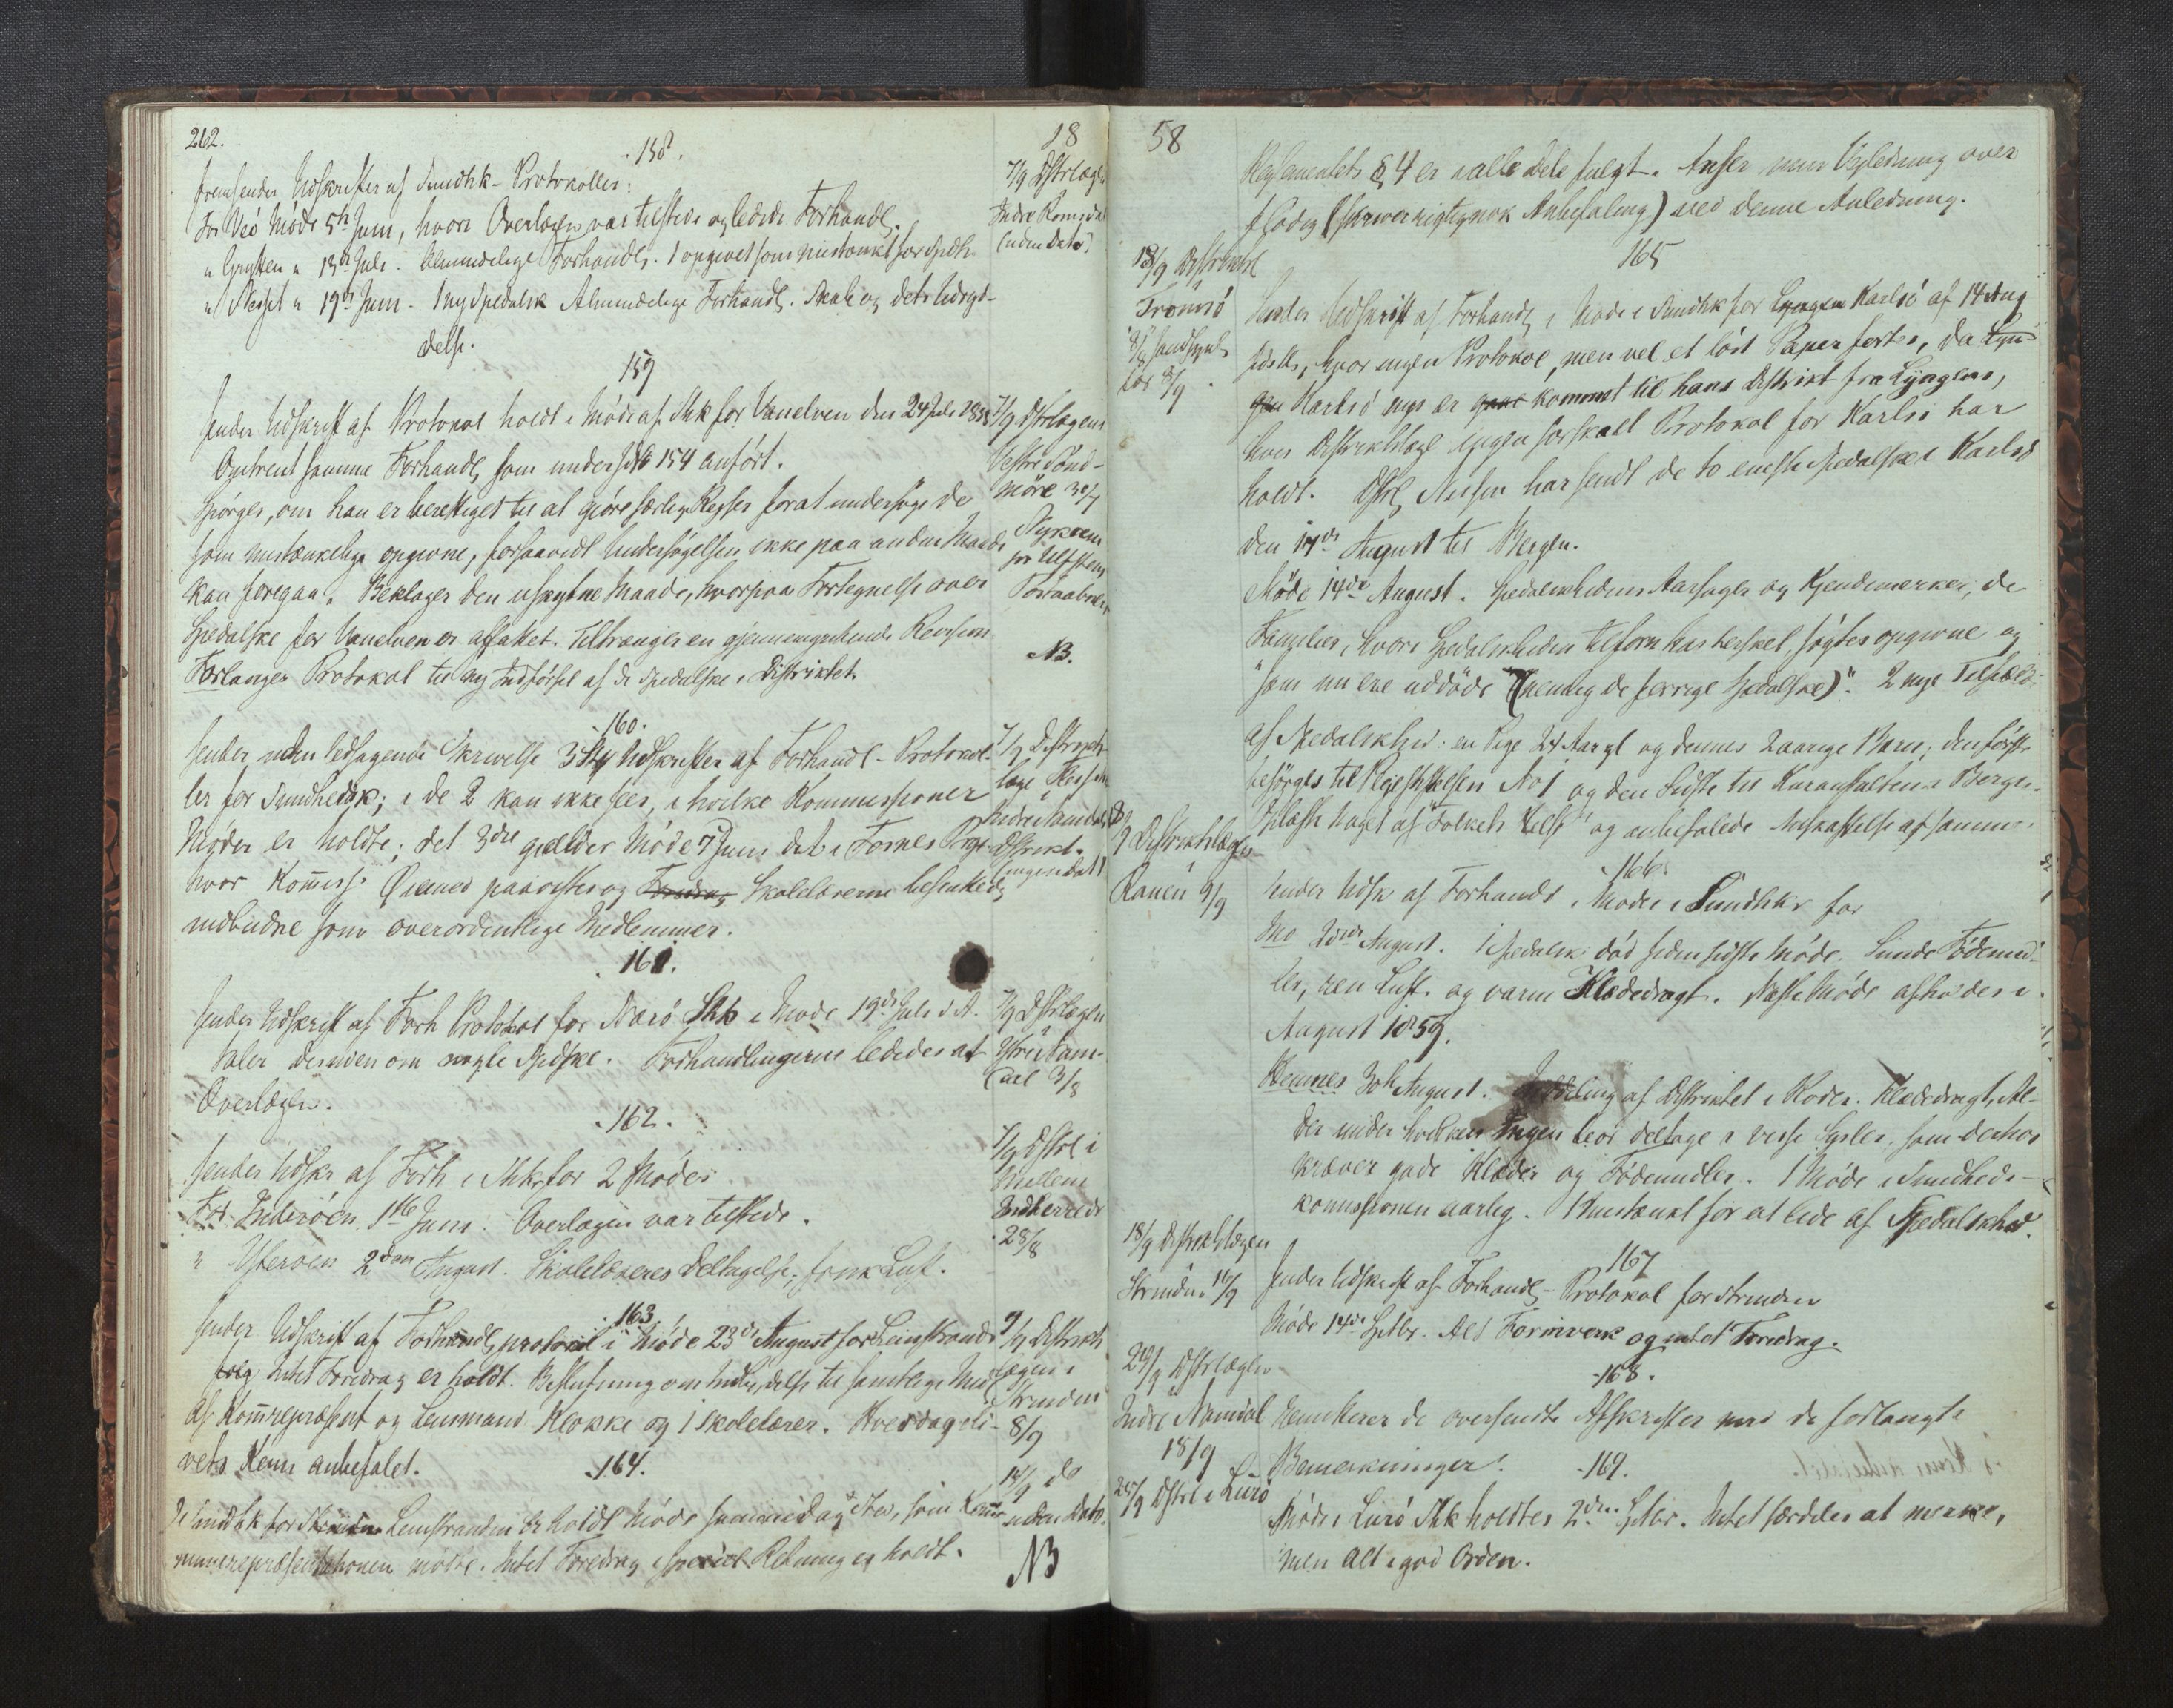 262.
18
158.
fremsender Udskrifter af Sundhk-Protokoller:
7/9 Dstrlægen
Indre Romsdal
(uden Dato)
for Veö Möde 5te Juni, hvori Overlægen var tilstede og ledede Forhandl.
" Grytten " 13de Juli. Almindelige Forhandl. 1 opgivet som mistænkt for Spedlh.
" Nesset " 19de Juni. 1 ny Spedalsk Almindelige Forhandl.
delse.
159
sender Udskrift af Protokol holdt i Möde af Shk for Vanelven den 24 Juli 1858
7/9 Dstrlægen
Vestre Sönd-
möre 30/7
Omtrent samme Forhandl, som under 154 anfört.
Spörger, om han er berettiget til at gjöre særlige Reyser for at undersöge de
som mistænkelige opgivne, forsaavidt Undersögelsen ikke paa anden Maade
kan foregaa. Beklager den Maade, hvorpaa Fortegnelse over
Spedalske for Vanelven er affattet. Tiltrænges en gjennemgribende Revision
Forlanger Protokol til ny Indförsel af de Spedalske i Distriktet
NB.
160.
sender uden ledsagende Skrivelse 3 Udskrifter af Forhandl-Protokol-
7/9 Distrikts-
læge
Indre Namdals
Dstrikt.
(ingen Dat)
ler for Sundhedsk; i de 2 kan ikke sees, i hvilke Kommissioner
Möder er holdte; det 3die gjælder Möde 7 Juni i Fosnes
hvor Kommiss. Öiemed paavistes og Foredrag Skolelærerne
indbudne som overordentlige Medlemmer.
161.
sender Udskrift af Forh Protokol for Nærö Shk i Möde 19de Juli d. A.
7/9 Dstrlægen
Ytre Nam-
dal 3/8
taler desuden om nogle Spedske. Forhandlingerne lededes af
Overlægen.
162.
sender Udskr af Forh i Shk for 2 Möder
7/9 Dstrl i
Mellem
Indherred
28/8
For Inderöen 1ste Juni. Overlægen var tilstede.
" Ytteröen 2den August. Skolelæreres Deltagelse, frisk Luft.
163
sender Udskrift af Forhandl protokol i Möde 23de August for Leinstranden
9/9 Distrikts
lægen i
Strinden
8/9
Intet Foredrag er holdt. Beslutning om Indbydelse til samtlige Medl
af Kommrepræsent og Lensmand Klokke og 1 skolelærer. Hverdagsli-
vets Renn anbefalet.
164.
I Sundhk for Strinden Leinstranden er holdt Möde samme Dag som Kom-
14/9 do
uden Dato.
munerepræsentationen mödte. Intet Foredrag i speciel Retning er holdt.
NB
58
Reglementets § 4 er i alle Dele fulgt. Anser min Veiledning over-
flödig (skriver rigtignok Anbefaling) ved denne Anledning.
165
18/9 Distriktsl
Tromsö
sender Udskrift af Forhandl i Möde i Sundhk for Lyngen Karlsö af 14 Aug
sidstl, hvor ingen Protokol, men vel et löst Papir fortes, da Lyn-
gen Karlsö nys er gaaet kommet til hans Distrikt fra Lyngens,
hvis Distriktslæge ingen særskilt Protokol for Karlsö har
holdt. Dstrl Nilsen har sendt de to eneste Spedalske i Karlsö
den 17de August til Bergen.
Möde 14de August. Spedalskhedens Aarsager og Kjendemerker, de
Familier, hvori Spedalskheden tilforn har hersket, sögtes opgivne og
"som nu ere uddöde (nemlig de forrige Spedalske)". 2 nye Tilfælde
af Spedalskhed: en Pige 24 Aar gl og dennes 2aarige Barn; den förste
besörges til Pleiestiftelsen No 1 og den sidste til Kuranstalten i Bergen.
Oplæste noget af "Folkets Helse" og anbefalede Anskaffelse af samme.
166
Distriktslægen
Ranen 9/9
sender Udsk af Forhandl i Möder i Sundhk for
Mo August. 1 Spedalsk död siden sidste Möde. Sunde Födemid-
ler, ren Luft og varm Klædedragt. Næste Möde afholdes i
August 1859.
Hemnes 30te August. Inddeling af Distriktet i Roder. Klædedragt, Al-
der under hvilken Ingen bör deltage i visse Sysler, som derhos
kræver gode Klæder og Födemidler. 1 Möde i Sundheds-
kommissionen aarlig. 1 Mistænkt for at lide af Spedalskhed.
167
18/9 Distriktslægen
Strinden 16/9
sender Udskrift af Forhandl-Protokol for Strinden
Möde 14de Septbr. Alt Formværk og intet Foredrag.
168.
20/9 Dstrlægen
Indre Namdal
18/9
Remitterer de oversendte Afskrifter med de forlangte
Bemerkninger.
169.
25/9 Dstrl i Lurö
Möde i Lurö Shk holdtes 2den Septbr. Intet særdeles at merke,
men Alt i god Orden.